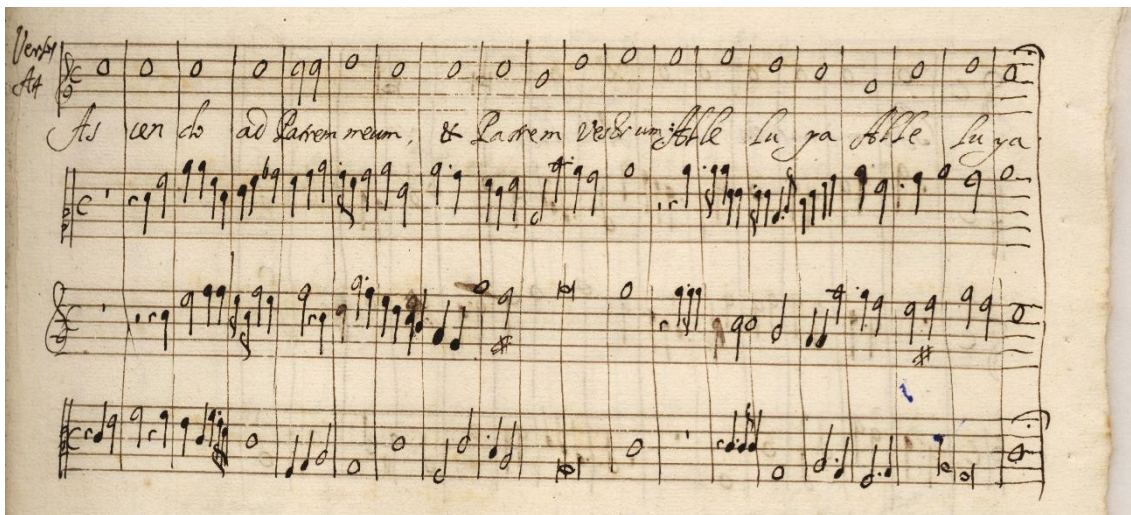 Versus
A4
As cen do ad Patrem meum, & Patrem vestrum: Alle lu ya Alle lu ya.